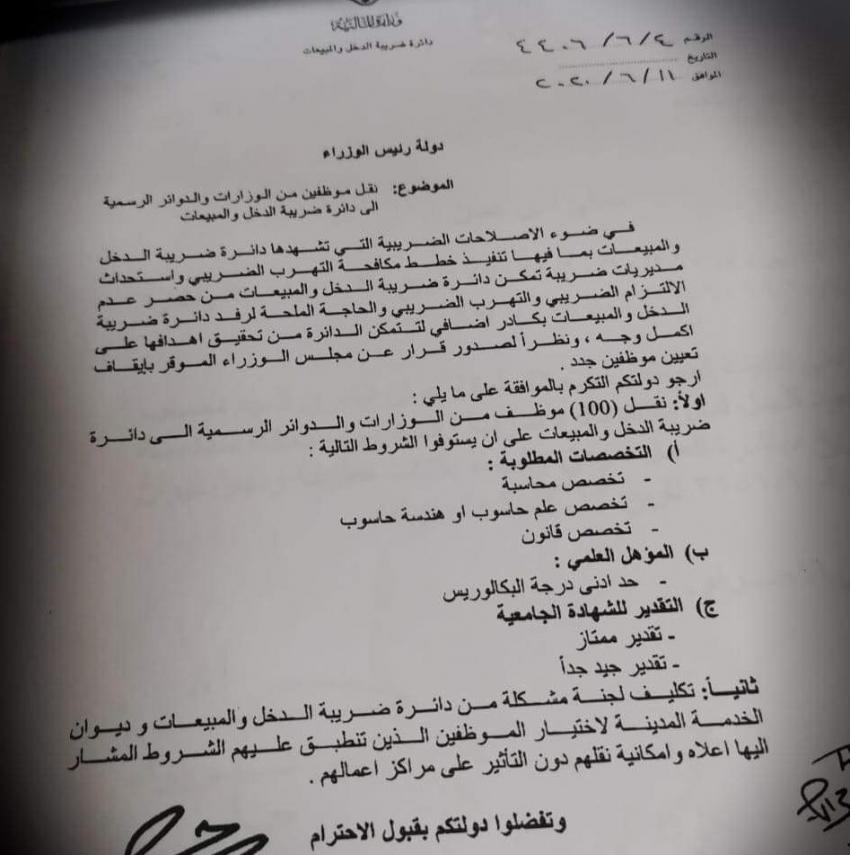 وزارة المالية
دائرة ضريبة الدخل والمبيعات
الرقم ٤٤٠٦/٦/٤
التاريخ
الموافق ٢٠٢٠/٦/١١
دولة رئيس الوزراء
الموضوع: نقل موظفين من الوزارات والدوائر الرسمية
الى دائرة ضريبة الدخل والمبيعات
في ضوء الاصلاحات الضريبية التي تشهدها دائرة ضريبة الدخل
والمبيعات بما فيها تنفيذ خطط مكافحة التهرب الضريبي واستحداث
مديريات ضريبة تمكن دائرة ضريبة الدخل والمبيعات من حصر عدم
الالتزام الضريبي والتهرب الضريبي والحاجة الملحة لرفد دائرة ضريبة
الدخل والمبيعات بكادر اضافي لتتمكن الدائرة من تحقيق اهدافها على
اكمل وجه ، ونظراً لصدور قرار عن مجلس الوزراء الموقر بإيقاف
تعيين موظفين جدد .
ارجو دولتكم التكرم بالموافقة على ما يلي :
اولاً: نقل (100) موظف من الوزارات والدوائر الرسمية الى دائرة
ضريبة الدخل والمبيعات على ان يستوفوا الشروط التالية :
أ) التخصصات المطلوبة :
- تخصص محاسبة
- تخصص علم حاسوب او هندسة حاسوب
- تخصص قانون
ب) المؤهل العلمي :
- حد ادنى درجة البكالوريس
ج) التقدير للشهادة الجامعية
- تقدير ممتاز
- تقدير جيد جداً
ثانياً: تكليف لجنة مشكلة من دائرة ضريبة الدخل والمبيعات و ديوان
الخدمة المدينة لاختيار الموظفين الذين تنطبق عليهم الشروط المشار
اليها اعلاه وامكانية نقلهم دون التأثير على مراكز اعمالهم .
وتفضلوا دولتكم بقبول الاحترام